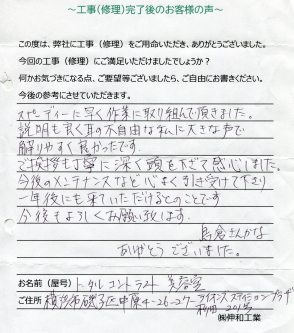 ～工事(修理)完了後のお客様の声～
この度は、弊社に工事（修理）をご用命いただき、ありがとうございました。
今回の工事（修理）にご満足いただけましたでしょうか？
何かお気づきになる点、ご要望等ございましたら、ご自由にお書きください。
今後の参考にさせていただきます。
スピーディーに早く作業に取り組んで頂きました。
説明も良く耳の不自由な私に大きな声で
解りやすく良かったです。
ご挨拶も丁寧に深く頭を下げて感心しました。
今後のメンテナンスなど心よく引き受けて下さり
一年後にも来ていただけるとのことです
今後もよろしくお願い致します。
ありがとうございました。
お名前（屋号）トータルコントラスト美容室
ご住所 横浜市磯子区中原4-26-27-ライオンズステーションプラザ
杉田
㈱伸和工業